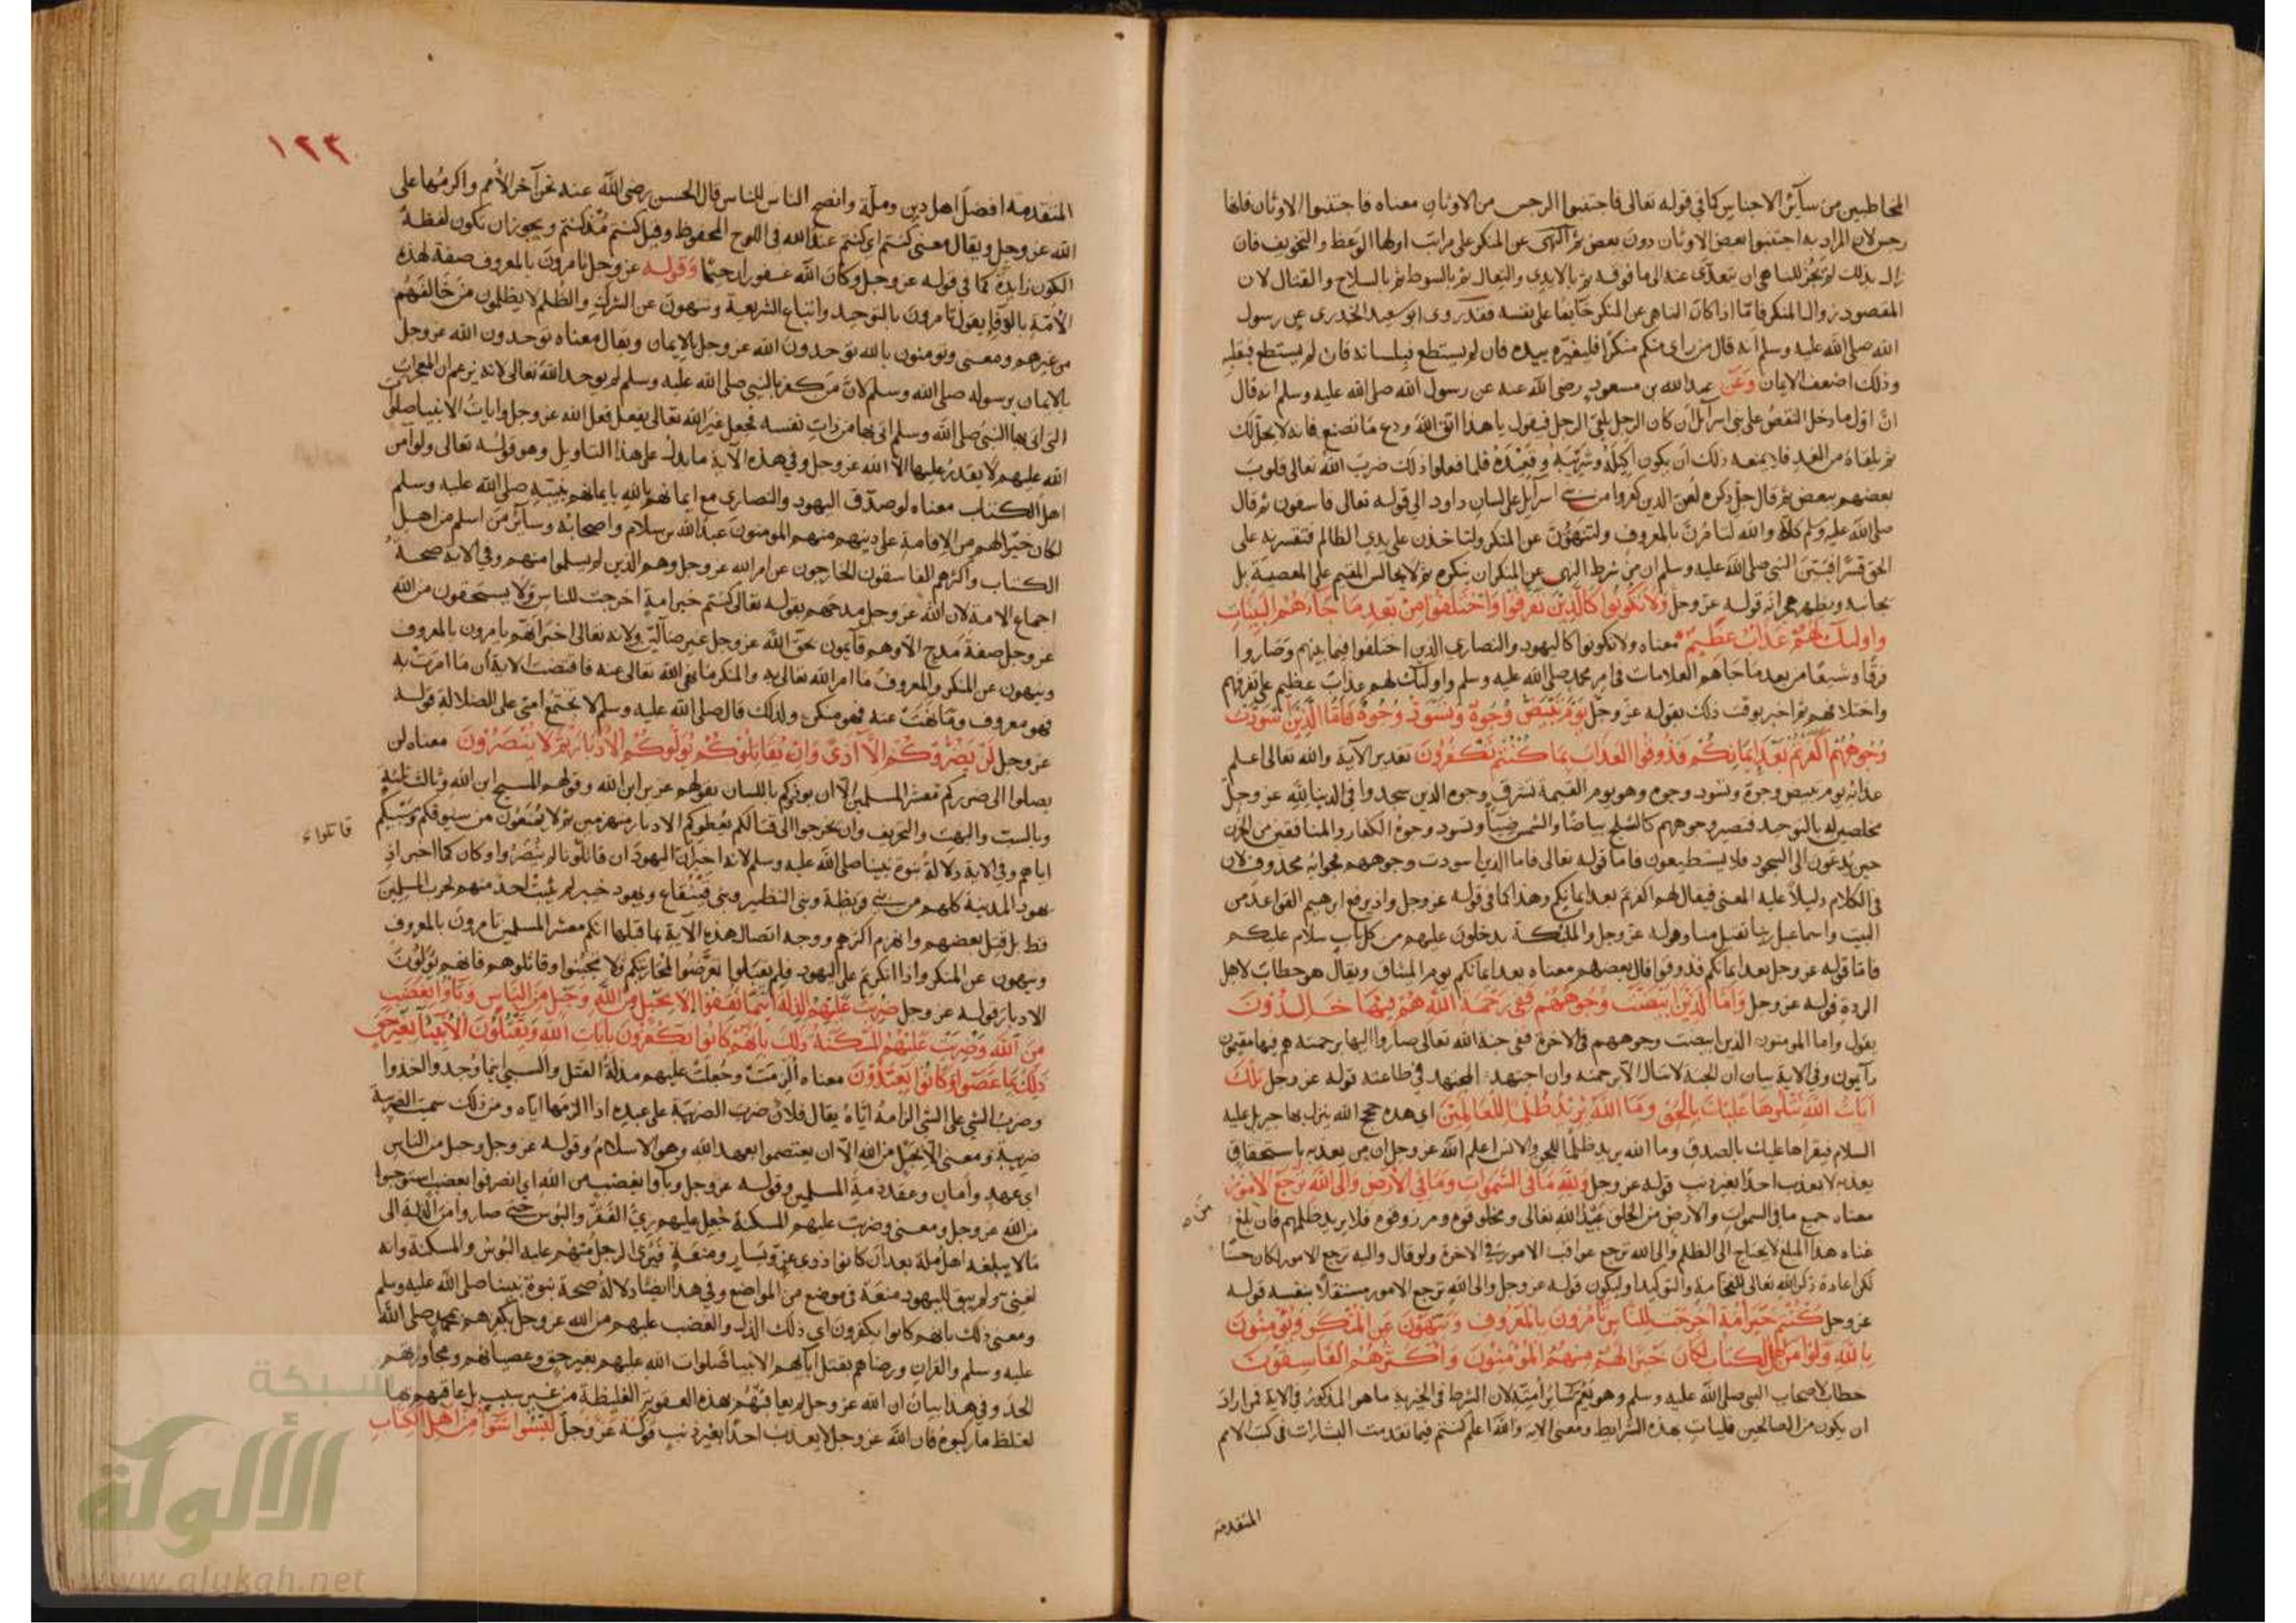 المخاطبين من سآئر الاجناس كما في قوله تعالى فاجتنبوا الرجس من الاوثان معناه فاجتنبوا الاوثان فانها
رجس لان المراد به اجتنبوا بعض الاوثان دون بعض ثم النهى عن المنكر على مراتب اولها الوعظ والتخويف فان
زال بذلك لم يجز للناهى ان يتعدى عنه الى ما فوقه ثم بالايدي والنعال ثم بالسوط ثم بالسلاح والقتال لان
المقصود زوال المنكر فامّا اذا كان الناهى عن المنكر خآيفا على نفسه فقد روى ابو سعيد الخدرى عن رسول
الله صلى الله عليه وسلم انه قال من راى منكم منكرًا فليغيّره بيده فان لم يستطع فبلسانه فان لم يستطع فبقلبه
وذلك اضعف الايمان وعن عبد الله بن مسعود رضى الله عنه عن رسول الله صلى الله عليه وسلم انه قال
انّ اول ما دخل النقص على بنى اسرآئل ان كان الرجل يلقى الرجل فيقول يا هذا اتق الله ودع ما تصنع فانه لا يحل لك
ثم يلقاه من الغد فلا يمنعه ذلك ان يكون اكيله وشريبه وقعيده فلما فعلوا ذلك ضرب الله تعالى قلوب
بعضهم ببعض ثم قال جل ذكره لعن الذين كفروا من بنى اسرآئل على لسان داود الي قوله تعالى فاسقون ثم قال
صلى الله عليه وسلم كلا والله لتامرن بالمعروف ولتنهون عن المنكر ولتاخذن على يدي الظالم فتقسرنه على
الحق قسرا فبين النبى صلى الله عليه وسلم ان من شرط النهى عن المنكر ان ينكره ثم لا يجالس المقيم على المعصية بل
يجانبه ويظهر هجرانه قوله عز وجل ولا تكونوا كالذين تفرقوا واختلفوا من بعد ما جاءهم البينات
واولئك لهم عذاب عظيم معناه ولا تكونوا كاليهود والنصارى الذين اختلفوا فيما بينهم وصاروا
فرقا وشيعًا من بعد ما جاهم العلامات فى امر محمد صلى الله عليه وسلم واولئك لهم عذاب عظيم على تفرقهم
واختلافهم ثم اخبر بوقت ذلك بقوله عز وجل يوم تبيض وجوه وتسود وجوه فاما الذين اسودت
وجوههم اكفرتم بعد ايمانكم فذوقوا العذاب بما كنتم تكفرون تقدير الآية والله تعالى اعلم
عذابه يوم تبيض وجوه وتسود وجوه وهو يوم القيمة تشرق وجوه الذين سجدوا فى الدنيا لله عز وجل
مخلصين له بالتوحيد فتصير وجوههم كالثلج بياضًا والشمس ضيآ وتسود وجوه الكفار والمنافقين من الحزن
حين يدعون الى السجود فلا يستطيعون فاما قوله تعالى فاما الذين اسودت وجوههم فجوابه محذوف لان
فى الكلام دليلا عليه المعنى فيقال لهم اكفرتم بعد ايمانكم وهذا كما فى قوله عز وجل واذ يرفع ابرهيم القواعد من
البيت واسماعيل ربنا تقبل منا وقوله عز وجل والملئكة يدخلون عليهم من كل باب سلام عليكم
فاما قوله عز وجل بعد ايمانكم فذوقوا قال بعضهم معناه بعد ايمانكم يوم الميثاق ويقال هو خطاب لاهل
الردة قوله عز وجل واما الذين ابيضت وجوههم ففى رحمة الله هم فيها خالدون
يقول واما المومنون الذين ابيضت وجوههم فى الاخرة ففى جنة الله تعالى صاروا اليها برحمته هم فيها مقيمون
دآيمون وفى الاية بيان ان الجنة لا تنال الا برحمته وان اجتهد المجتهد فى طاعته قوله عز وجل تلك
آيات الله نتلوها عليك بالحق وما الله يريد ظلما للعالمين اى هذه حجج الله ينزل بها جبريل عليه
السلام فيقراها عليك بالصدق وما الله يريد ظلمًا للجن والانس اعلم الله عز وجل ان من يعذبه باستحقاق
يعذبه لا يعذب احدًا بغير ذنب قوله عز وجل ولله ما فى السموات وما فى الارض والى الله ترجع الامور
معناه جميع ما فى السموات والارض من الخلق عبيد الله تعالى ومخلوقوه ومرزوقوه فلا يريد ظلمهم فان بلغ
غناه هذا المبلغ لا يحتاج الى الظلم والى الله ترجع عواقب الامور فى الاخرة ولو قال واليه ترجع الامور لكان حسنًا
لكن اعادة ذكر الله تعالى للفخامة والتوكيد وليكون قوله عز وجل والى الله ترجع الامور مستقلاً بنفسه قوله
عز وجل كنتم خير أمة اخرجت للناس تأمرون بالمعروف وتنهون عن المنكر وتؤمنون
بالله ولو آمن اهل الكتاب لكان خيرا لهم منهم المؤمنون واكثرهم الفاسقون
خطاب لاصحاب النبى صلى الله عليه وسلم وهو يعم سائر امته لان الشرط فى الخيرية ما هو المذكور فى الاية فمن اراد
ان يكون من الصالحين فليات بهذه الشرايط ومعنى الاية والله اعلم كنتم فيما تقدمت البشارات فى كتب الامم
المتقدمة
١٢٣
المتقدمة افضل اهل دين وملّة وانصح الناس للناس قال الحسن رضى الله عنه نحن آخر الأمم واكرمها على
الله عز وجل ويقال معنى كنتم اى كنتم عند الله فى اللوح المحفوظ وقيل كنتم مذ كنتم ويجوز ان تكون لفظة
الكون زايدة كما فى قوله عز وجل وكان الله غفورا رحيمًا وقوله عز وجل تامرون بالمعروف صفة لهذه
الأمّة بالوفا يقول تامرون بالتوحيد واتباع الشريعة وتنهون عن الشرك والظلم لا يظلمون من خالفهم
من غيرهم ومعنى وتومنون بالله توحدون الله عز وجل بالايمان ويقال معناه توحدون الله عز وجل
بالايمان برسوله صلى الله وسلم لان من كفر بالنبى صلى الله عليه وسلم لم يوحد الله تعالى لانه يزعم ان المعجزات
التى اتى بها النبى صلى الله وسلم اتى بها من ذات نفسه فجعل غير الله تعالى يفعل فعل الله عز وجل وايات الانبيا صلوات
الله عليهم لا يقدر عليها الا الله عز وجل وفى هذه الآية ما يدل على هذا التاويل وهو قوله تعالى ولو آمن
اهل الكتاب معناه لو صدق اليهود والنصارى مع ايمانهم بالله بايمانهم بنبيه صلى الله عليه وسلم
لكان خيرًا لهم من الاقامة على دينهم منهم المومنون عبد الله بن سلام واصحابه وسآئر من اسلم من اهل
الكتاب واكثرهم الفاسقون الخارجون عن امر الله عز وجل وهم الذين لم يسلموا منهم وفى الاية صحة
اجماع الامة لان الله عز وجل مدحهم بقوله تعالى كنتم خير امة اخرجت للناس ولا يستحقون من الله
عز وجل صفة مدح الا وهم قآيمون بحق الله عز وجل غير ضآلين ولانه تعالى اخبر انهم يامرون بالمعروف
وينهون عن المنكر والمعروف ما امر الله تعالى به والمنكر ما نهى الله تعالى عنه فاقتضت الاية ان ما امرت به
فهو معروف وما نهت عنه فهو منكر ولذلك قال صلى الله عليه وسلم لا تجتمع امتى على الضلالة قوله
عز وجل لن يضروكم الا اذى وان يقاتلوكم يولوكم الادبار ثم لا ينصرون معناه لن
يصلوا الى ضرركم معشر المسلمين الا ان يوذوكم باللسان بقولهم عزير ابن الله وقولهم المسيح ابن الله وثالث ثلثة
وبالسب والبهت والتحريف وان يخرجوا الى قتالكم يعطوكم الادبار منهزمين ثم لا يمنعون من سيوفكم وسبيكم
قاتلوا
اياهم وفى الاية دلالة نبوة نبينا صلى الله عليه وسلم لانه اخبر ان اليهود ان قاتلونا لم ينصروا وكان كما اخبر اذ
يهود المدينة كلهم من بنى قريظة وبنى النظير وبنى قينقاع ويهود خيبر لم يثبت احد منهم لحرب المسلمين
قط بل قتل بعضهم وانهزم اكثرهم ووجه اتصال هذه الآية بما قبلها انكم معشر المسلمين تامرون بالمعروف
وتنهون عن المنكر واذا انكرتم على اليهود فلم يقبلوا تعرضوا لمحاربتكم فلا تجبنوا وقاتلوهم فانهم يولون
الادبار قوله عز وجل ضربت عليهم الذلة اينما ثقفوا الا بحبل من الله وحبل من الناس وباؤا بغضب
من الله وضربت عليهم المسكنة ذلك بانهم كانوا يكفرون بايات الله ويقتلون الانبيآ بغير حق
ذلك بما عصوا وكانوا يعتدون معناه الزمت وجعلت عليهم مذلة القتل والسبي اينما وجدوا اخذوا
وضرب الشي على الشي الزامه ايّاه يقال فلان ضرب الضريبة على عبده اذا الزمها ايّاه ومن ذلك سميت الضريبة
ضريبة ومعنى الا بحبل من الله الا ان يعتصموا بعهد الله وهو الاسلام وقوله عز وجل وحبل من الناس
اى عهد وامان وعقد ذمة المسلمين وقوله عز وجل وبآوا بغضب من الله اى انصرفوا بغضب استوجبوا
من الله عز وجل ومعنى وضربت عليهم المسكنة جعل عليهم زيّ الفقر والبوس حتى صاروا من الذلة الى
ما لا يبلغه اهل ملة بعد ان كانوا ذوى عز ويسار ومنعة فترى الرجل منهم عليه البوس والمسكنة وانه
لغنى ولم يبق لليهود منعة فى موضع من المواضع وفى هذا ايضًا دلالة صحة نبوة نبينا صلى الله عليه وسلم
ومعنى ذلك بانهم كانوا يكفرون اى ذلك الذل والغضب عليهم من الله عز وجل بكفرهم بمحمد صلى الله
عليه وسلم والقران ورضاهم بقتل آبآئهم الانبيا صلوات الله عليهم بغير حق وعصيانهم ومجاوزتهم
الحد وفى هذا بيان ان الله عز وجل لم يعاقبهم بهذه العقوبة الغليظة من غير سبب بل عاقبهم بها
لغلظ ما ركبوه فان الله عز وجل لا يعذب احدًا بغير ذنب قوله عز وجل ليسوا سوآ من اهل الكتاب
شبكة
الألوكة
www.alukah.net